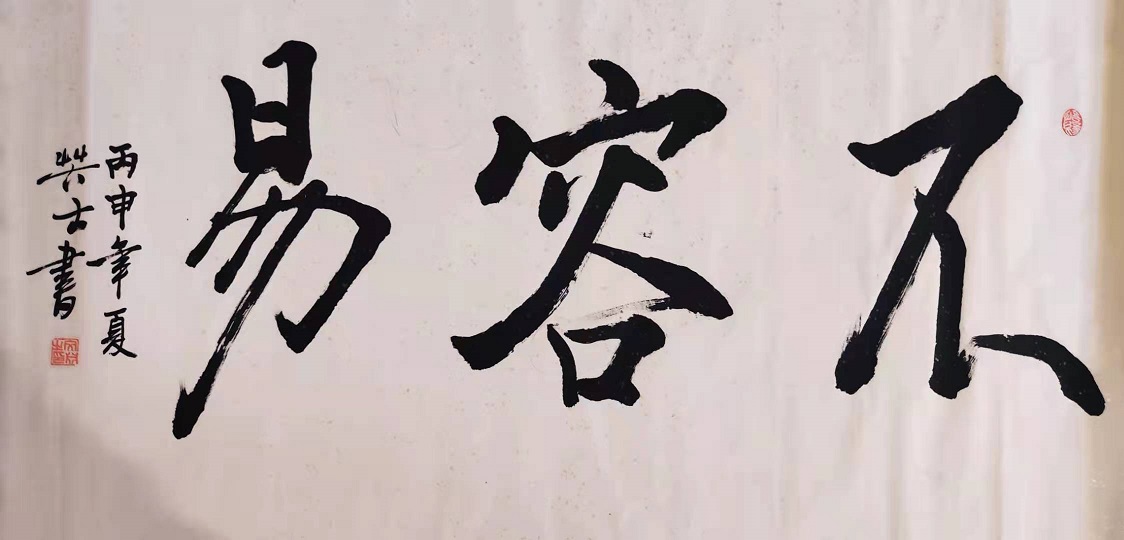 不容易
丙申年夏
書